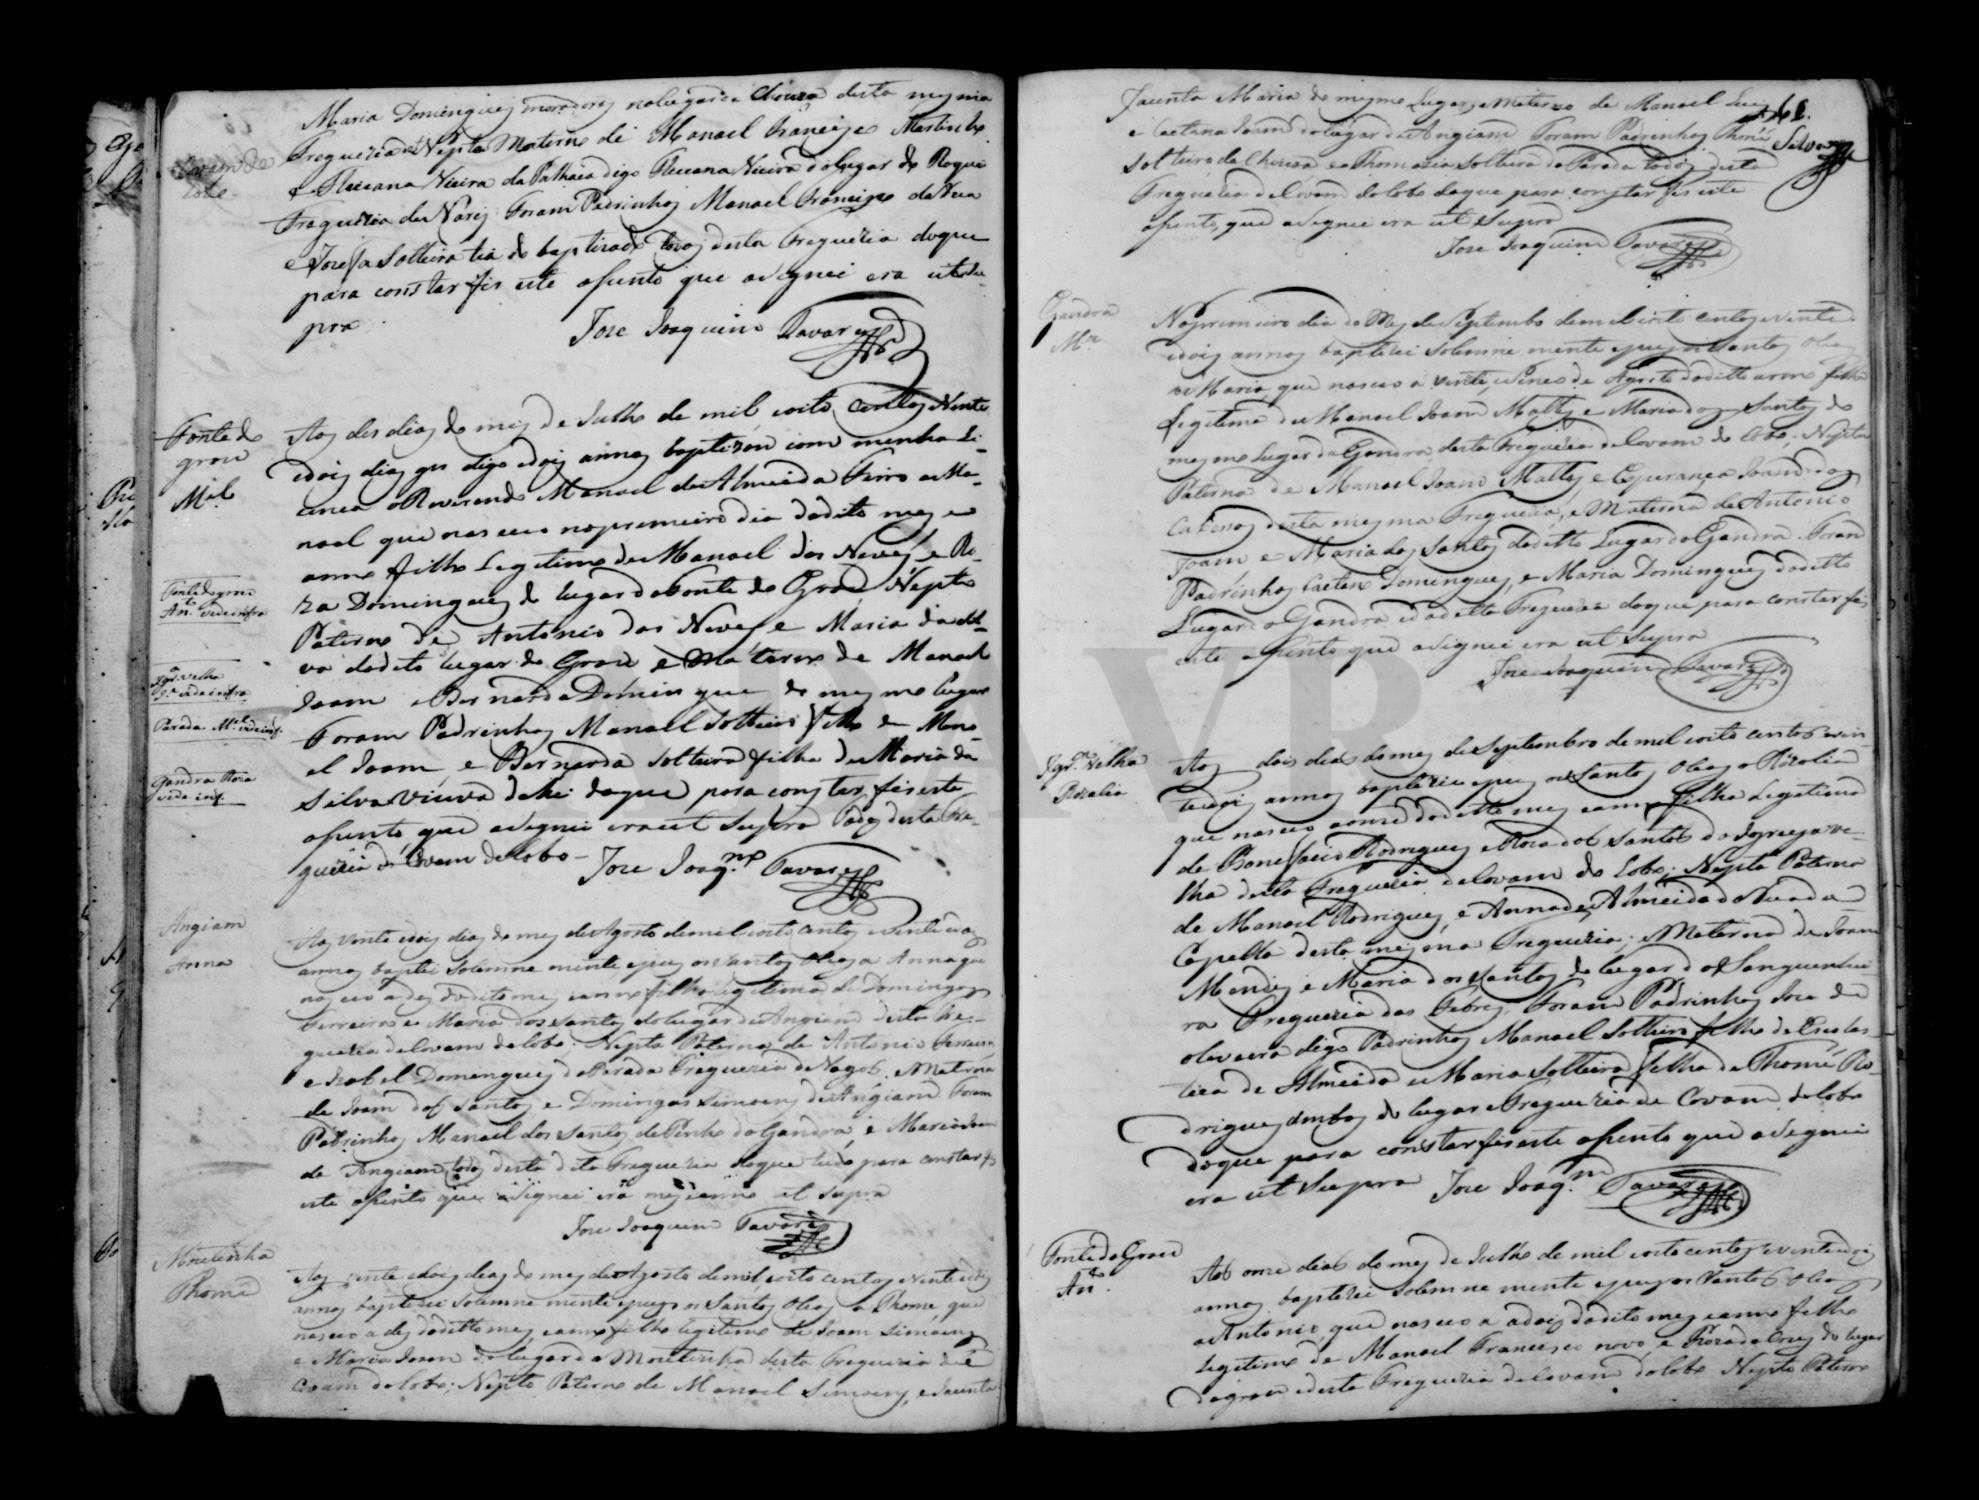 Maria Domingues moradores no lugar da Chouza desta mesma
Freguezia e Nepto Materno de Manoel Francisco Martinho
e Floriana Vieira da Palhaça digo Floriana Vieira do Lugar do Roque
Freguezia de Nariz Foram Padrinhos Manoel Francisco da
e Josefa Solteira tia do baptizado todos desta Freguezia doque
para constar fis este asento que asignei era ut Su-
pra
Jose Joaquim Tavares
Covam do
Lobo
Fonte do
grou
M.el
Aos des dias do mes de Julho de mil oito centos Vinte
edois dias gus digo edois annos baptizou com minha Li-
cença o Reverendo Manoel de Almeida Ferro a Ma-
noel que nasceo no premeiro dia do dito mes e
anno filho Legitimo de Manoel dos Neves e Ro-
za Domingues do lugar da Fonte do Grou Nepto
Paterno de Antonio das Neves e Maria da Sil-
va do dito lugar do Grou e Materno de Manoel
Joam e Bernarda Domingues do mesmo lugar
Foram Padrinhos Manoel Solteiro filho de Mano-
el Joam e Bernarda Solteira filha de Maria da
Silva Viuva dahi doque para constar fis este
asento que asignei era ut Supra todos desta Fre-
guezia de Covam do Lobo - Jose Joaq.m Tavares
Fonte do grou
Ant.º vide infra
Igr.ª velha
vide infra
Parada M.el vide inf.
Gandra Roza
vide inf.
Angiam
Anna
Aos vinte edois dias do mes de Agosto de mil oito centos e vinte edois
annos baptizei Solemne mente e pus os Santos Oleos a Anna que
nasceo a des do dito mes e anno filha legitima de Domingos
Ferreira e Maria dos Santos do lugar de Angiam desta Fre-
guezia de Covam do lobo; Nepta Paterna de Antonio Ferreira
e Izabel Domingues da Parada Freguezia de Vagos. e Materna
de Joam dos Santos e Domingas Simoens de Angiam Foram
Padrinhos Manoel dos Santos de Pinho da Gandra, e Maria Joam
de Angiam todos desta dita Freguezia doque tudo para constar fis
este asento que asignei era mes e anno ut supra
Jose Joaquim Tavares
Moutinha
Thomé
Aos vinte edois dias do mes de Agosto de mil oito centos e vinte edois
annos baptizei Solemne mente e pus os Santos Oleos a Thomé que
nasceo a des do ditto mes e anno filho legitimo de Joam Simoens
e Maria Joam do lugar da Moutinha desta Freguezia de
Covam do lobo; Nepto Paterno de Manoel Simoens, e Jacinta
61.
Silva
Jacinta Maria do mesmo Lugar, e Materno de Manoel Luis
e Caetana Joam do lugar de Angiam Foram Padrinhos Thomé
Solteiro da Chouza e a Thomazia Solteira da Parada todos desta
Freguezia de Covam do lobo doque para constar fis este
asento que asignei era ut Supra
Jose Joaquim Tavares
Gandra
M.ª
No premeiro dia do Mes de Septembro de mil oito centos e vinte
edois annos baptizei Solemne mente e pus os Santos Oleos
a Maria, que nasceo a vinte e Sinco de Agosto do ditto anno filha
Legitima de Manoel Joam Mattos e Maria dos Santos do
mesmo Lugar da Gandra desta Freguezia de Covam do Lobo; Nepta
Paterna de Manoel Joam Mattos e Esperança Joam das
Cabessas desta mesma Freguezia, e Materna de Antonio
Joam e Maria dos Santos do ditto Lugar da Gandra. Foram
Padrinhos Caetano Domingues, e Maria Domingues do ditto
Lugar da Gandra e da ditta Freguezia doque para constar fis
este asento que asignei era ut Supra
Jose Joaquim Tavares
Igr.ª Velha
Rozalia
Aos dois dias do mes de Septembro de mil oito centos e vin-
te edois annos baptizei e pus os Santos Oleos a Rozalia
que nasceo a onze do ditto mes e anno filha Legitima
de Bonefacio Rodrigues e Roza dos Santos da Igreja ve-
lha desta Freguezia de Covam do Lobo; Nepta Paterna
de Manoel Rodrigues, e Anna de Almeida do
Capella desta mesma Freguezia; e Materna de Joam
Mendes e Maria dos Santos do lugar da Sanguinhei-
ra Freguezia das Febres. Foram Padrinhos Jose de
oliveira digo Padrinhos Manoel Solteiro filho de Escolas-
tica de Almeida e Maria Solteira filha de Thomé Ro-
drigues ambos do lugar e Freguezia de Covam do lobo
doque para constar fis este asento que asignei
era ut Supra Jose Joaq.m Tavares
Fonte do Grou
An.to
Aos onze dias do mes de Julho de mil oito centos e vinte e dois
annos baptizei Solemne mente e pus os Santos Oleos
a Antonio que nasceo a dois do dito mes e anno filho
Legitimo de Manoel Francisco novo e Roza da Cruz do lugar
do grou e desta Freguezia de Covam do lobo Nepto Paterno